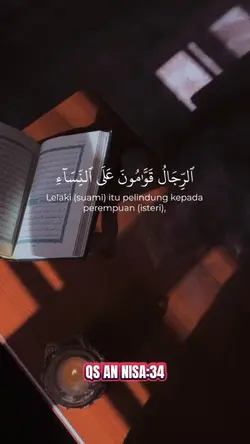 ٱلرِّجَالُ قَوَّٰمُونَ عَلَى ٱلنِّسَآءِ
Lelaki (suami) itu pelindung kepada
perempuan (isteri),
QS AN NISA:34